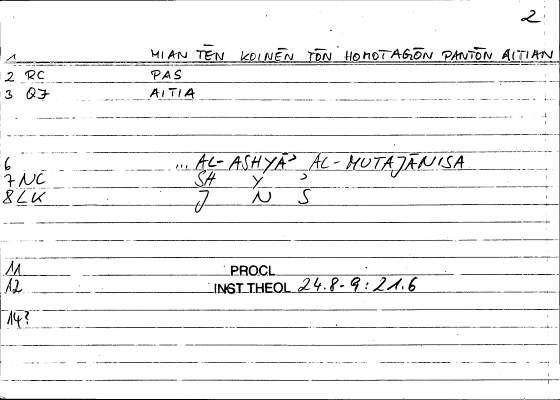 2
1 MIAN TĒN KOINĒN TŌN HOMOTAGŌN PANTŌN AITIAN
2 RC PAS
3 QJ AITIA
6 ... AL-ASHYĀʾ AL-MUTAJĀNISA
7 NC SH Y ʾ
8 LK J N S
11 PROCL
12 INST THEOL 24.8-9 : 21.6
14?